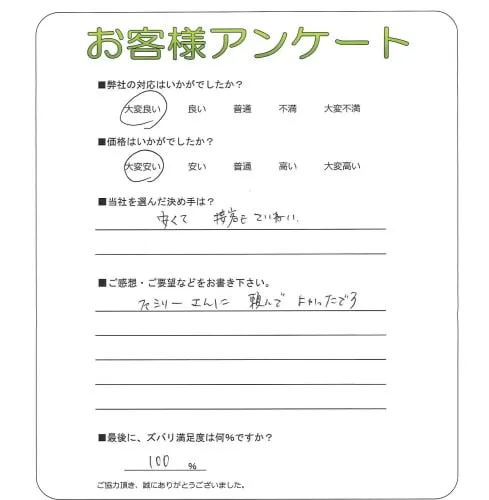 お客様アンケート
■弊社の対応はいかがでしたか？
大変良い 良い 普通 不満 大変不満
■価格はいかがでしたか？
大変安い 安い 普通 高い 大変高い
■当社を選んだ決め手は？
安くて 接客も ていねい
■ご感想・ご要望などをお書き下さい。
ミリーさんに 頼んで よかったです
■最後に、ズバリ満足度は何%ですか？
100 %
ご協力頂き、誠にありがとうございました。